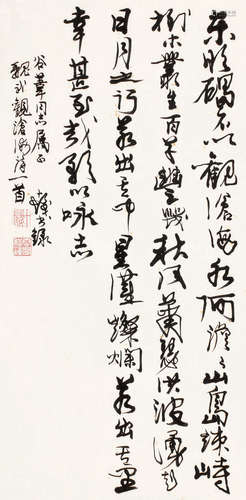 東臨碣石以觀滄海水何澹〻山島竦峙
樹木叢生百草豐茂秋風蕭瑟洪波湧起
日月之行若出其中星漢燦爛若出其里
幸甚至哉歌以咏志
谷葦同志屬正
錄
魏武觀滄海詩一首